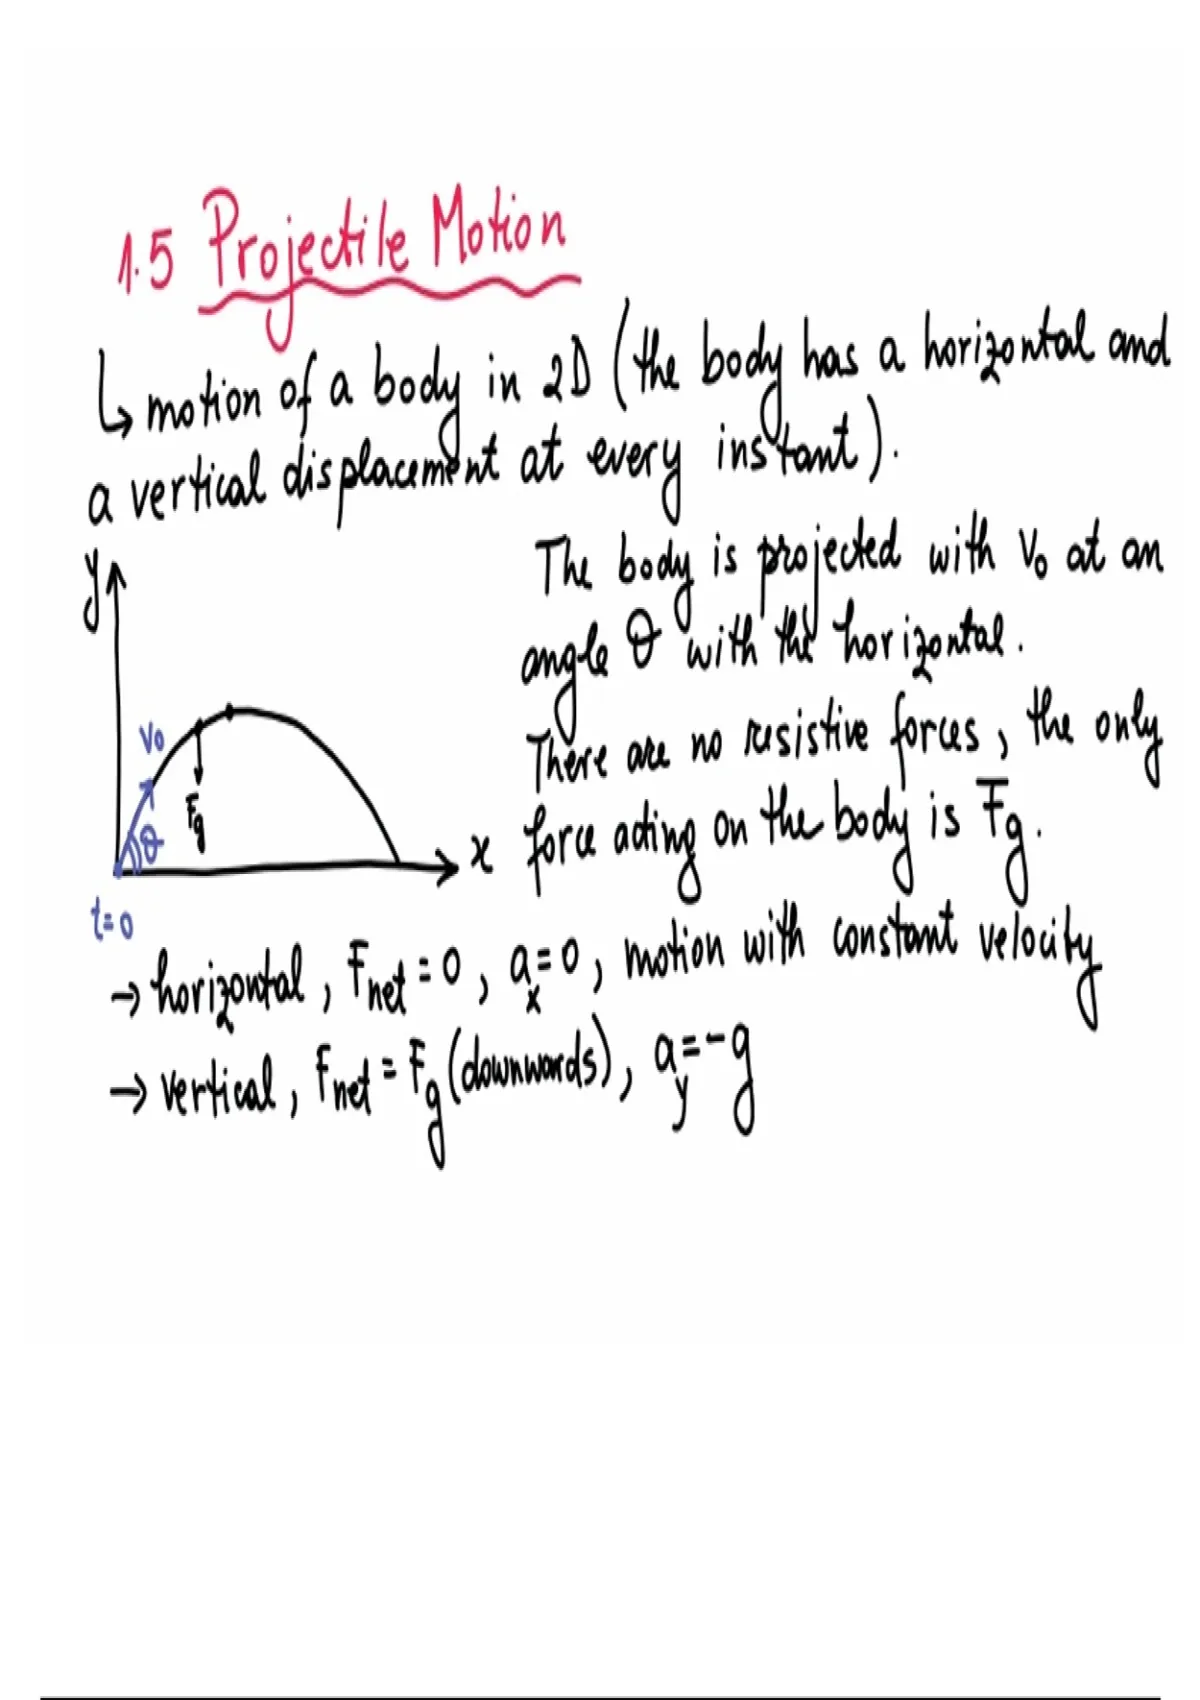 1.5 Projectile Motion
↳ motion of a body in 2D (the body has a horizontal and
a vertical displacement at every instant).
The body is projected with v₀ at an
angle θ with the horizontal.
There are no resistive forces, the only
force acting on the body is Fg.
y
v₀
Fg
θ
x
t=0
→ horizontal, Fnet = 0, aₓ=0, motion with constant velocity
→ vertical, Fnet = Fg (downwards), ay=-g